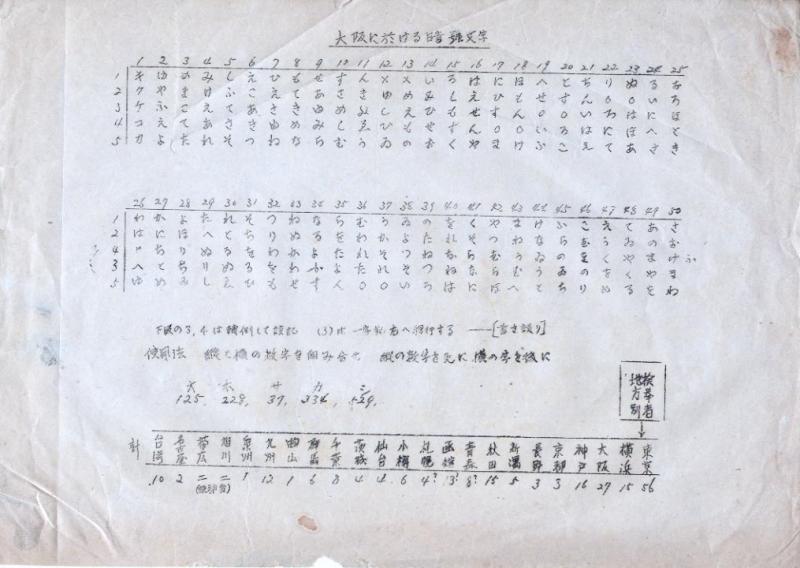 大阪に於ける暗號文字
1 2 3 4 5 6 7 8 9 10 11 12 13 14 15 16 17 18 19 20 21 22 23 24 25
1 キ ゆ め み し え ひ も せ す ん × × い ろ は に ほ へ と ち り ぬ る を
2 ク や ま け ふ こ え て あ さ き ゆ め み し え ひ も せ す ん 0 0 い ろ
3 ケ ふ こ え て あ さ き ゆ め み し ゑ ひ も せ す ん 0 0 い ろ は に ほ
4 コ え て あ さ き ゆ め み し ゑ ひ も せ す ん 0 0 い ろ は に ほ へ と
5 カ よ た れ そ つ ね な ら む う ゐ の お く や ま け ふ こ え て あ さ き
26 27 28 29 30 31 32 33 34 35 36 37 38 39 40 41 42 43 44 45 46 47 48 49 50
1 わ か よ た れ そ つ ね な ら む う ゐ の を く や ま け ふ こ え て あ さ
2 は に ほ へ と ち り ぬ る を わ か よ た れ そ つ ね な ら む う ゐ の お
4 ち り ぬ る を わ か よ た れ そ つ ね な ら む う ゐ の を く や ま け ふ
3 へ と ち り ぬ る を わ か よ た れ そ つ ね な ら む う ゐ の お く や ま
5 ゆ め み し ゑ ひ も せ す ん 0 0 い ろ は に ほ へ と ち り ぬ る を わ
下段の3,4は轉倒して誤記 (3)は一字宛右へ移行する ——[書き誤り]
使用法 縱と横の数字を組み合せ 縱の数字を先に横の字を後に
大 木 サ カ シ
125. 228. 37. 334. 529.
検挙者地方別
計 台湾 名古屋 帯広 旭川 泉州 九州 岡山 群馬 千葉 茨城 仙台 小樽 札幌 函館 青森 秋田 新潟 長野 京都 神戸 大阪 横浜 東京
10 2 二 二 1 12 1 6 3 4 4 6 4? 13? 8? 15 5 3 3 16 27 15 56